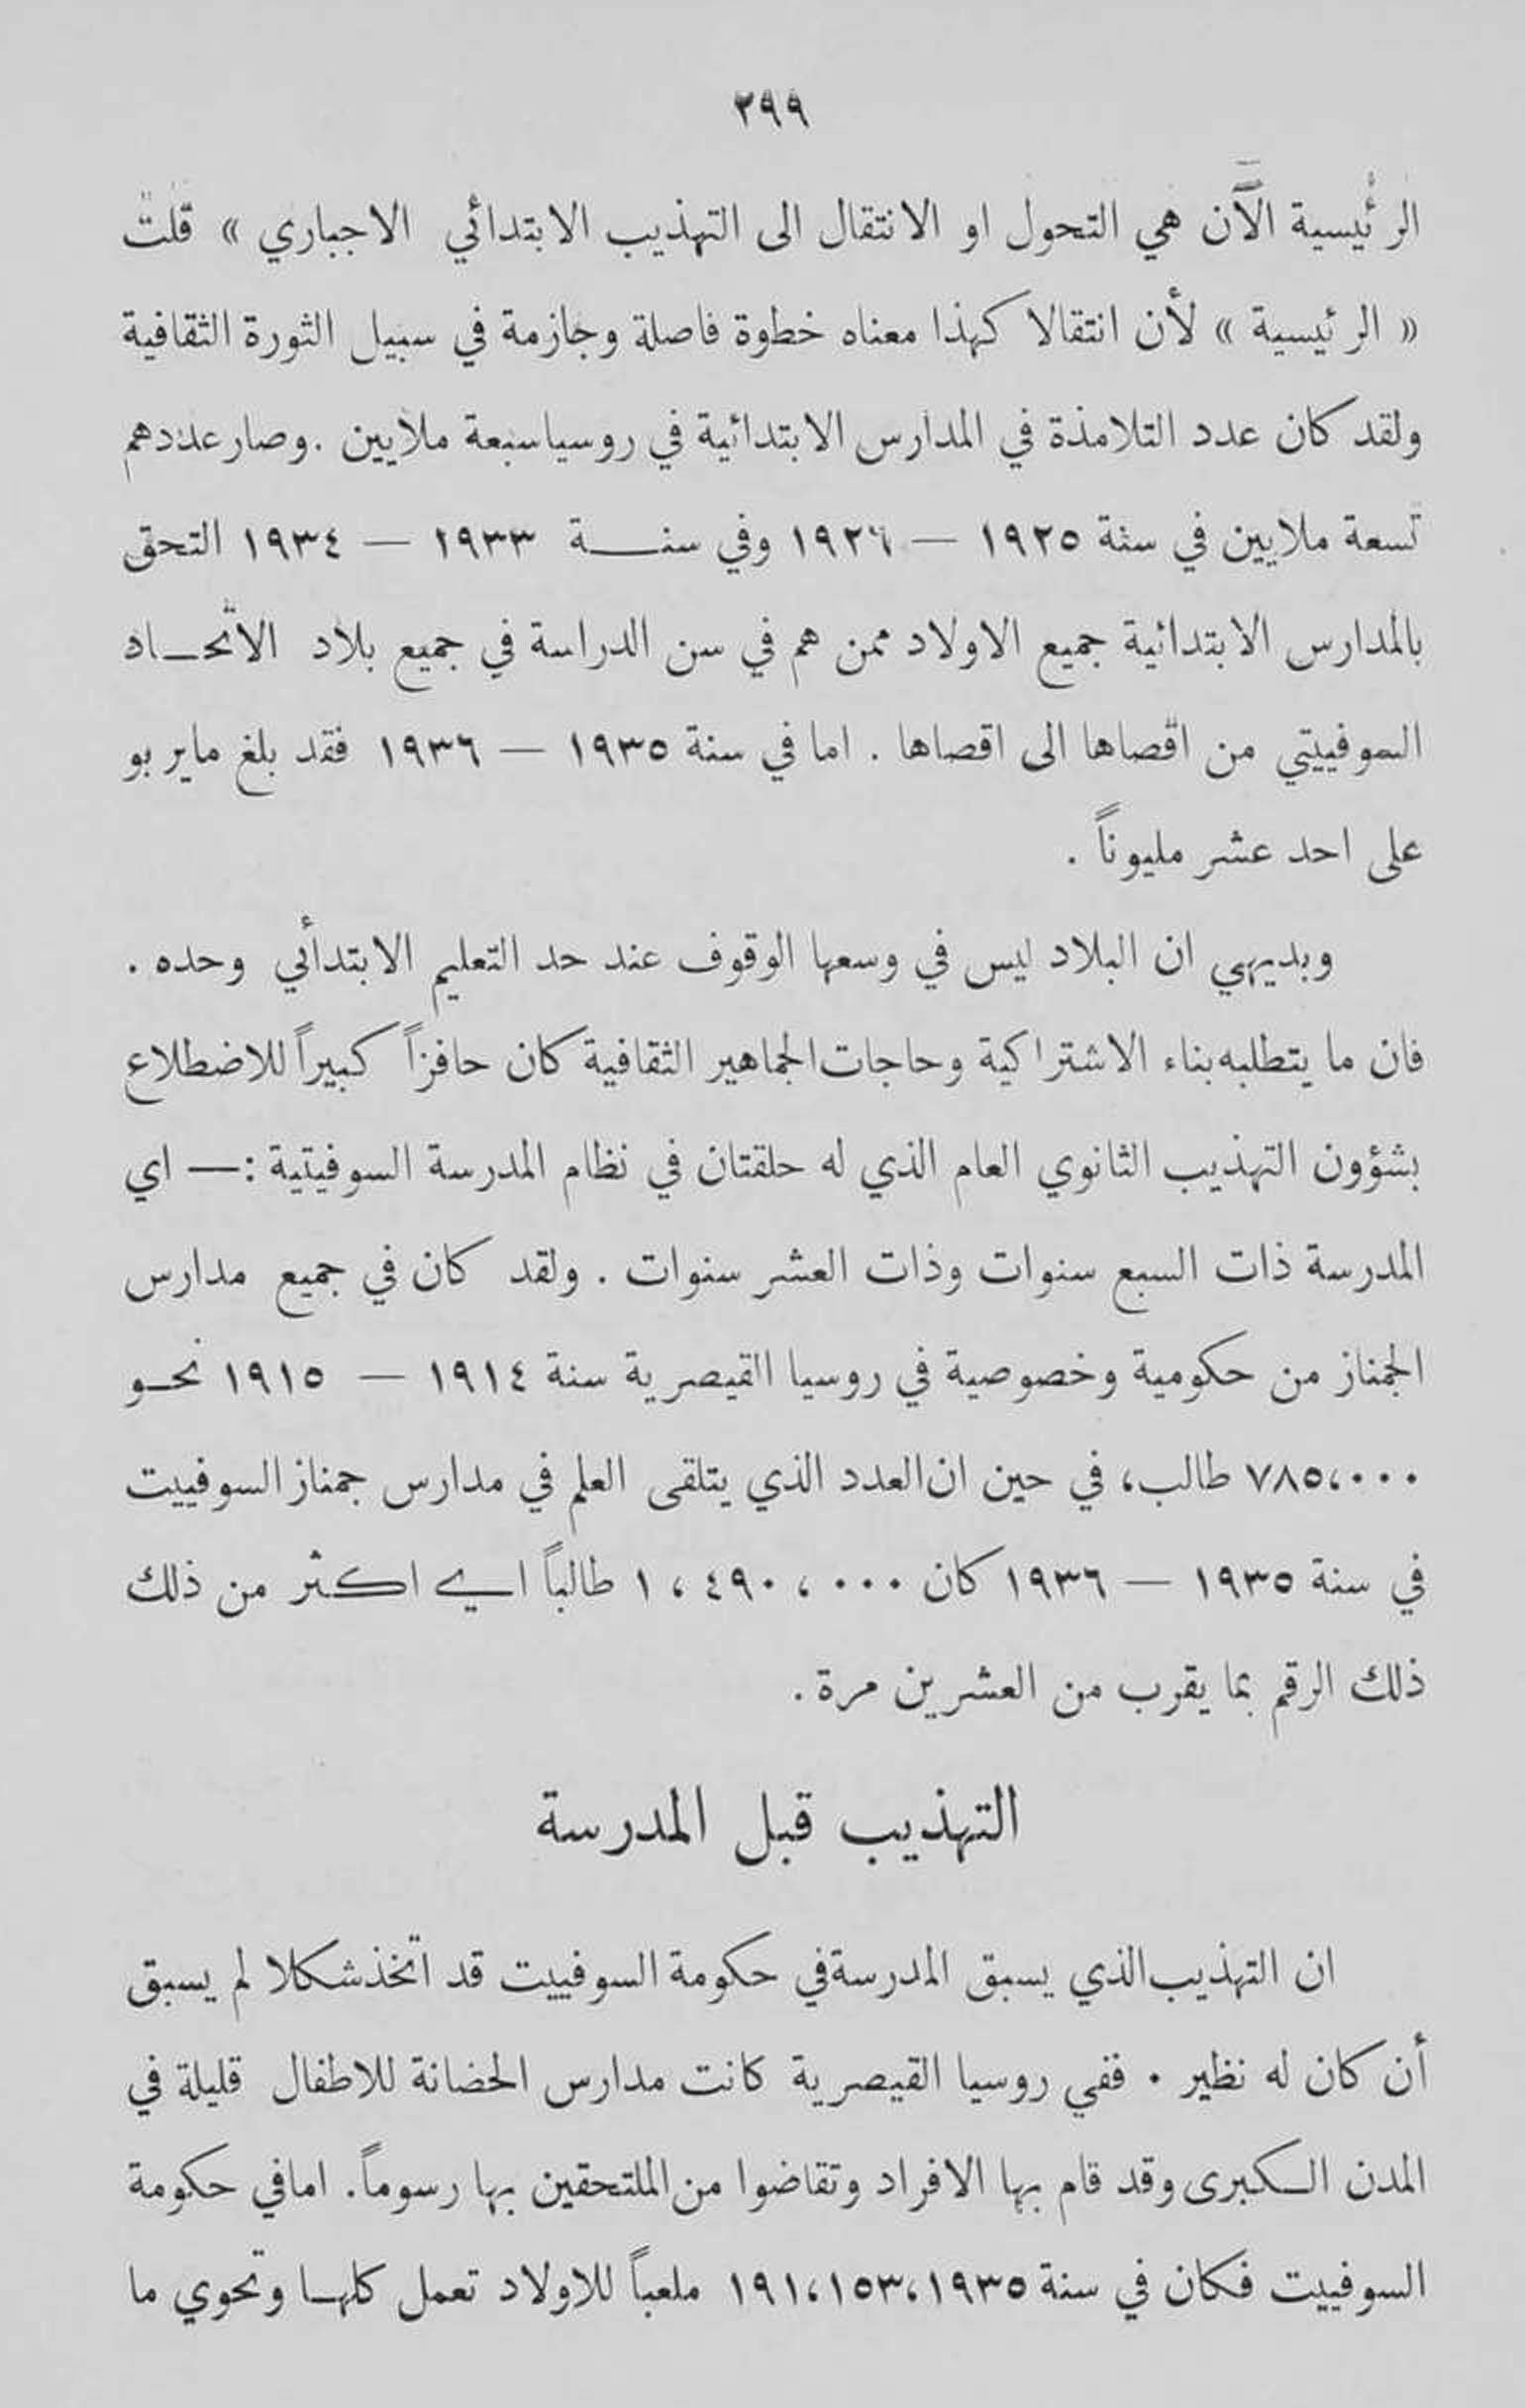 ٢٩٩
الرئيسية الآن هي التحول او الانتقال الى التهذيب الابتدائي الاجباري » قلت
« الرئيسية » لأن انتقالا كهذا معناه خطوة فاصلة وجازمة في سبيل الثورة الثقافية
ولقد كان عدد التلامذة في المدارس الابتدائية في روسيا سبعة ملايين . وصار عددهم
تسعة ملايين في سنة ١٩٢٥ — ١٩٢٦ وفي سنة ١٩٣٣ — ١٩٣٤ التحق
بالمدارس الابتدائية جميع الاولاد ممن هم في سن الدراسة في جميع بلاد الاتحاد
السوفييتي من اقصاها الى اقصاها . اما في سنة ١٩٣٥ — ١٩٣٦ فقد بلغ ما يربو
على احد عشر مليوناً .
وبديهي ان البلاد ليس في وسعها الوقوف عند حد التعليم الابتدائي وحده .
فان ما يتطلبه بناء الاشتراكية وحاجات الجماهير الثقافية كان حافزاً كبيراً للاضطلاع
بشؤون التهذيب الثانوي العام الذي له حلقتان في نظام المدرسة السوفيتية :— اي
المدرسة ذات السبع سنوات وذات العشر سنوات . ولقد كان في جميع مدارس
الجمناز من حكومية وخصوصية في روسيا القيصرية سنة ١٩١٤ — ١٩١٥ نحو
٧٨٥،٠٠٠ طالب، في حين ان العدد الذي يتلقى العلم في مدارس جمناز السوفييت
في سنة ١٩٣٥ — ١٩٣٦ كان ١،٤٩٠،٠٠٠ طالباً اي اكثر من ذلك
ذلك الرقم بما يقرب من العشرين مرة .
التهذيب قبل المدرسة
ان التهذيب الذي يسبق المدرسة في حكومة السوفييت قد اتخذ شكلا لم يسبق
أن كان له نظير . ففي روسيا القيصرية كانت مدارس الحضانة للاطفال قليلة في
المدن الكبرى وقد قام بها الافراد وتقاضوا من الملتحقين بها رسوماً. اما في حكومة
السوفييت فكان في سنة ١٩٣٥،١٥٣،١٩١ ملعباً للاولاد تعمل كلها وتحوي ما